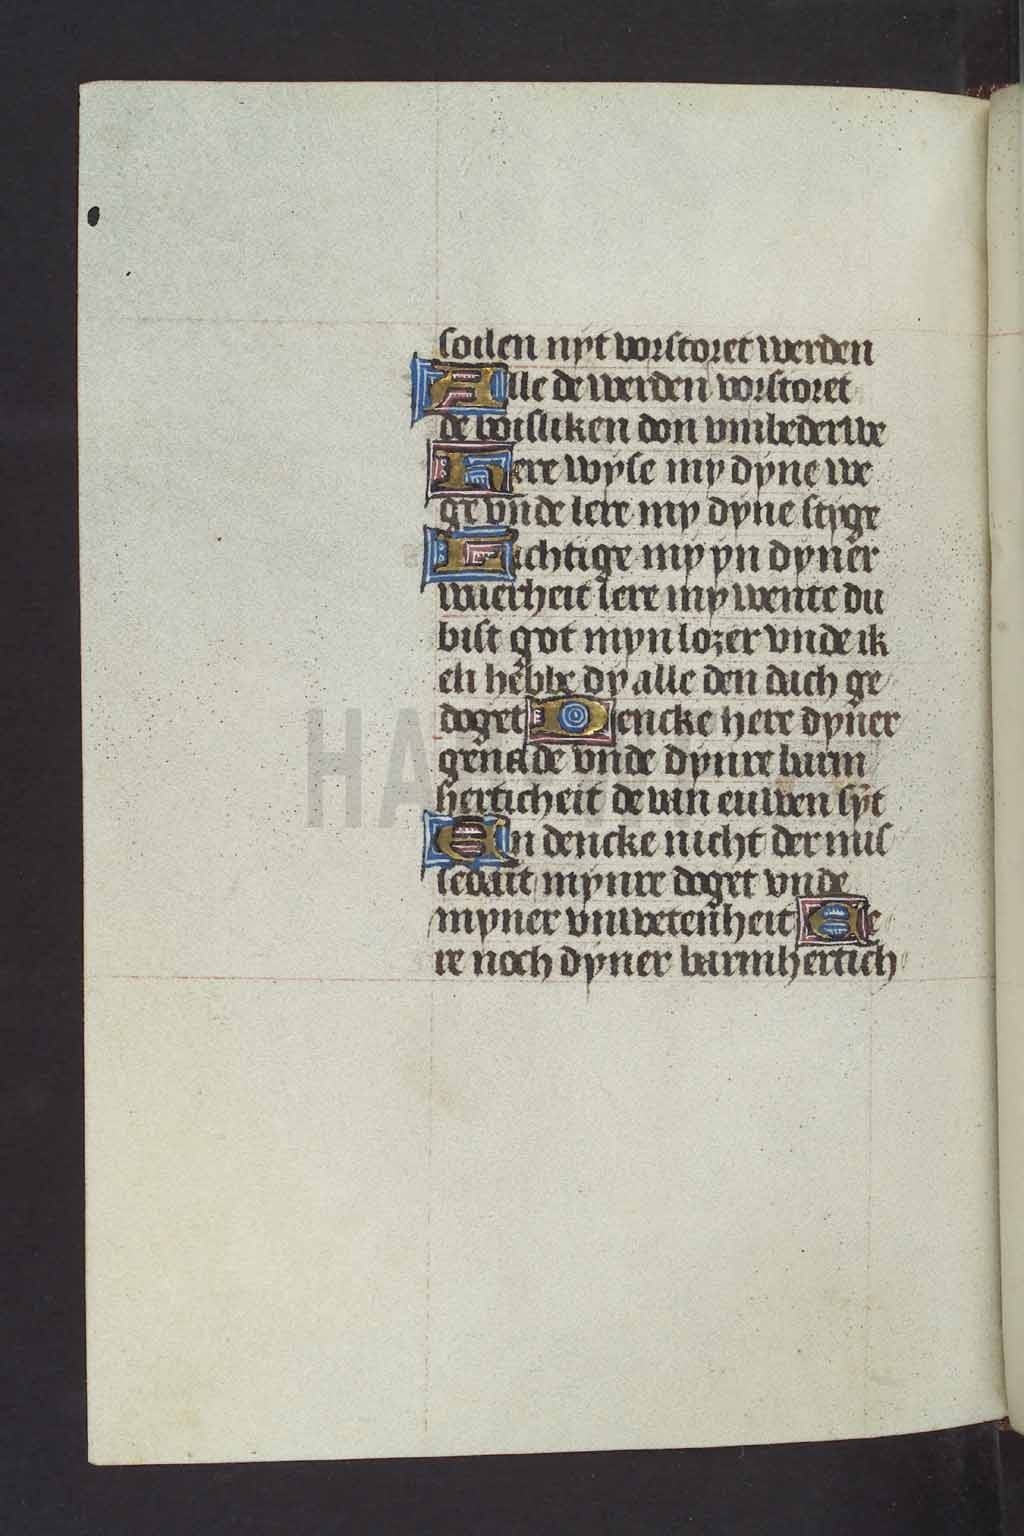 soilen nyt vorstoret werden
Alle de werden vorstoret
de boisliken don vmbederwe
Here wyse my dyne we
ge vnde lere my dyne styge
Lichtige my yn dyner
waerheit lere my wente du
bist got myn lozer vnde ik
eh hebbe dy alle den dach ge
doget Dencke here dyner
genade vnde dynre barm
herticheit de van euwen syt
En dencke nicht der mis
sedait mynre doget vnde
myner vnwetenheit Ae
re noch dyner barmhertich